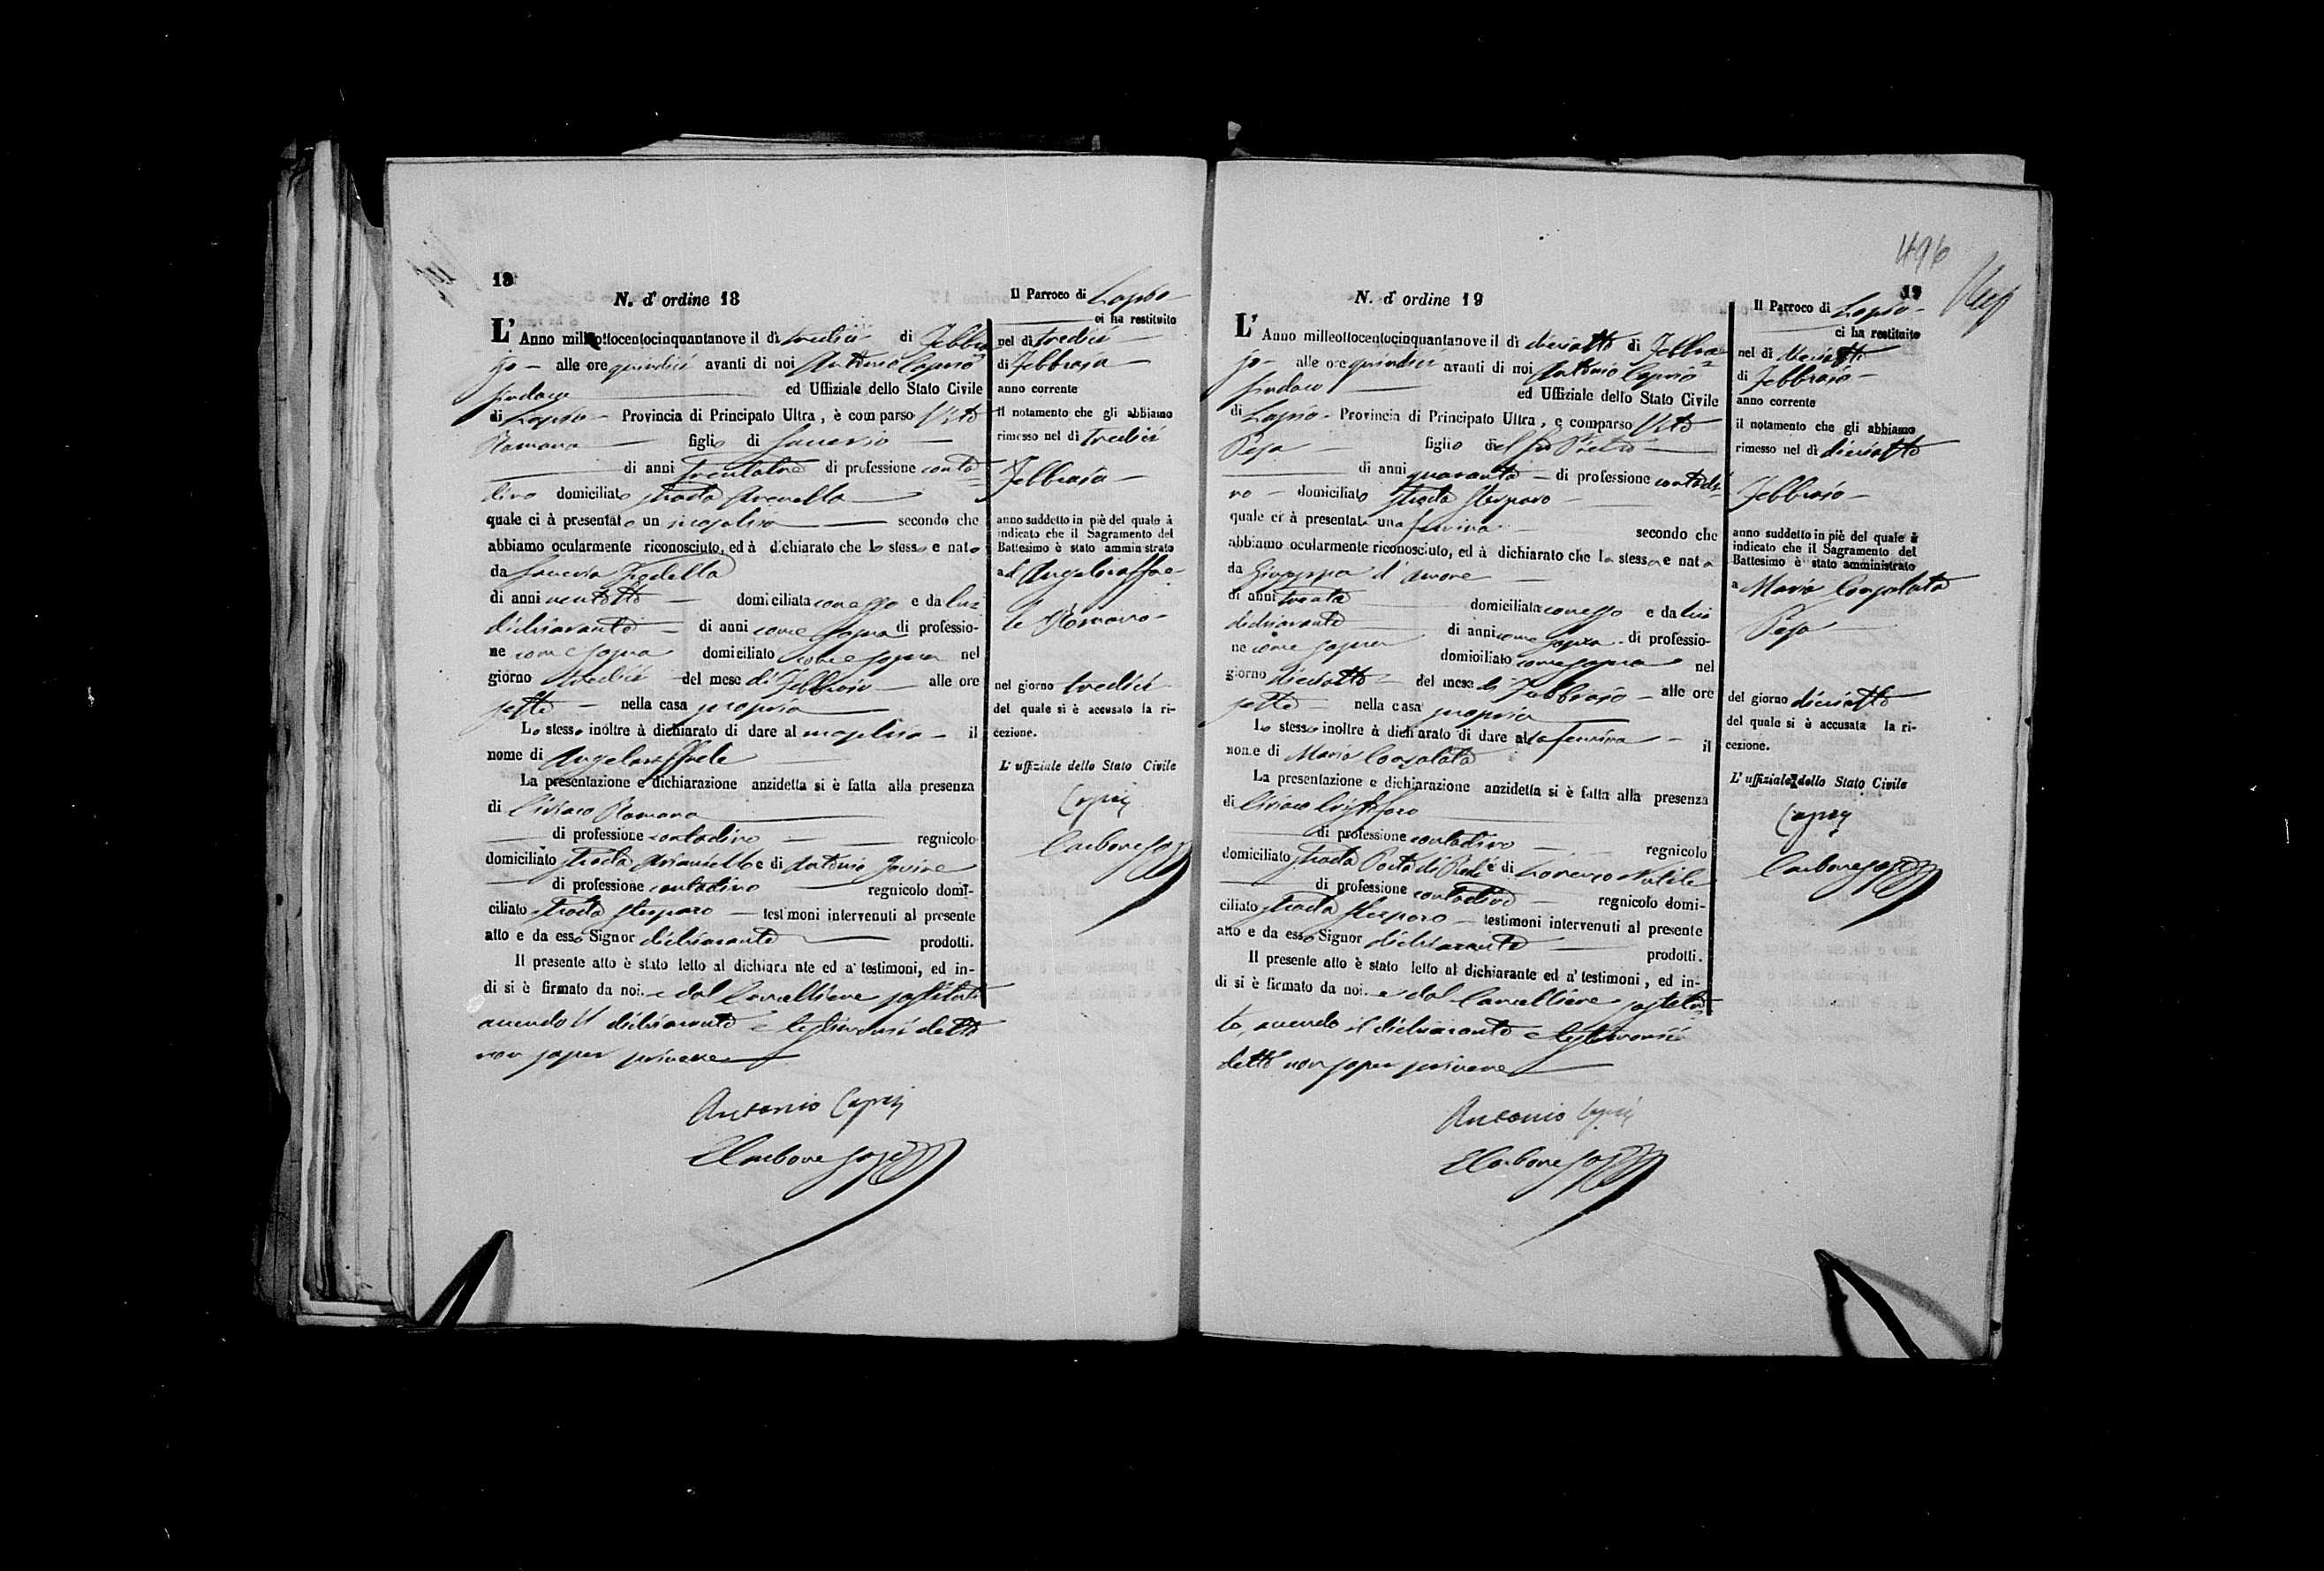 18
N. d' ordine 18
L' Anno milleottocentocinquantanove il dì tredici di Febbra
jo - alle ore quindici avanti di noi Antonio Caprio
Sindaco ed Uffiziale dello Stato Civile
di Lapio - Provincia di Principato Ultra, è comparso Vito
Romano figlio di Saverio
di anni trentatre di professione conta
dino domiciliato strada
quale ci à presentato un mascolino secondo che
abbiamo ocularmente riconosciuto, ed à dichiarato che lo stesso e nato
da Saveria
di anni ventotto domiciliata con esso e da lui
dichiarante - di anni come sopra di professio-
ne come sopra domiciliato come sopra nel
giorno tredici del mese di Febbraio - alle ore
sette - nella casa propria
Lo stesso inoltre à dichiarato di dare al mascolino - il
nome di Angeloraffaele
La presentazione e dichiarazione anzidetta si è fatta alla presenza
di Ciriaco Romano
di professione contadino regnicolo
domiciliato strada e di Antonio Iovine
di professione contadino regnicolo domi-
ciliato strada testimoni intervenuti al presente
atto e da esso Signor dichiarante prodotti.
Il presente atto è stato letto al dichiara nte ed a' testimoni, ed in-
di si è firmato da noi. e dal Cancelliere sostituto
avendo il dichiarante e testimoni detto
non saper scrivere
Antonio Caprio
Carbone
Il Parroco di Lapio
ci ha restituito
nel dì tredici
di Febbraio -
anno corrente
il notamento che gli abbiamo
rimesso nel dì tredici
Febbraio -
anno suddetto in piè del quale à
indicato che il Sagramento del
Battesimo è stato amministrato
ad Angeloraffae-
le Romano -
nel giorno tredici
del quale si è accusato la ri-
cezione.
L' uffiziale dello Stato Civile
Caprio
Carbone
496
19
N. d' ordine 19
L' Anno milleottocentocinquantanove il dì dieciotto di Febbra
jo - alle ore quindici avanti di noi Antonio Caprio
Sindaco ed Uffiziale dello Stato Civile
di Lapio - Provincia di Principato Ultra, e comparso Vito
Pepa figlio del fu Pietro
di anni quaranta - di professione contadi
no - domiciliato strada
quale ci à presentato una femina secondo che
abbiamo ocularmente riconosciuto, ed à dichiarato che la stessa e nata
da Giuseppa d'
di anni trenta domiciliata con esso e da lui
dichiarante di anni come sopra di professio-
ne come sopra domiciliato come sopra nel
giorno dieciotto del mese di Febbraio - alle ore
sette - nella casa propria
Lo stesso inoltre à dichiarato di dare alla femina - il
nome di Maria Consolata
La presentazione e dichiarazione anzidetta si è fatta alla presenza
di Ciriaco Cristofaro
di professione contadino regnicolo
domiciliato strada Porta di e di Lorenzo
di professione contadino regnicolo domi-
ciliato strada testimoni intervenuti al presente
atto e da esso Signor dichiarante prodotti.
Il presente atto è stato letto al dichiarante ed a' testimoni, ed in-
di si è firmato da noi. e dal Cancelliere sostitu
to, avendo il dichiarante e testimoni
detto non saper scrivere
Antonio Caprio
Carbone
Il Parroco di Lapio -
ci ha restituito
nel dì dieciotto
di Febbraio -
anno corrente
il notamento che gli abbiamo
rimesso nel dì dieciotto
Febbraio -
anno suddetto in piè del quale à
indicato che il Sagramento del
Battesimo è stato amministrato
a Maria Consolata
Pepa
del giorno dieciotto
del quale si è accusata la ri-
cezione.
L' uffiziale dello Stato Civile
Caprio
Carbone